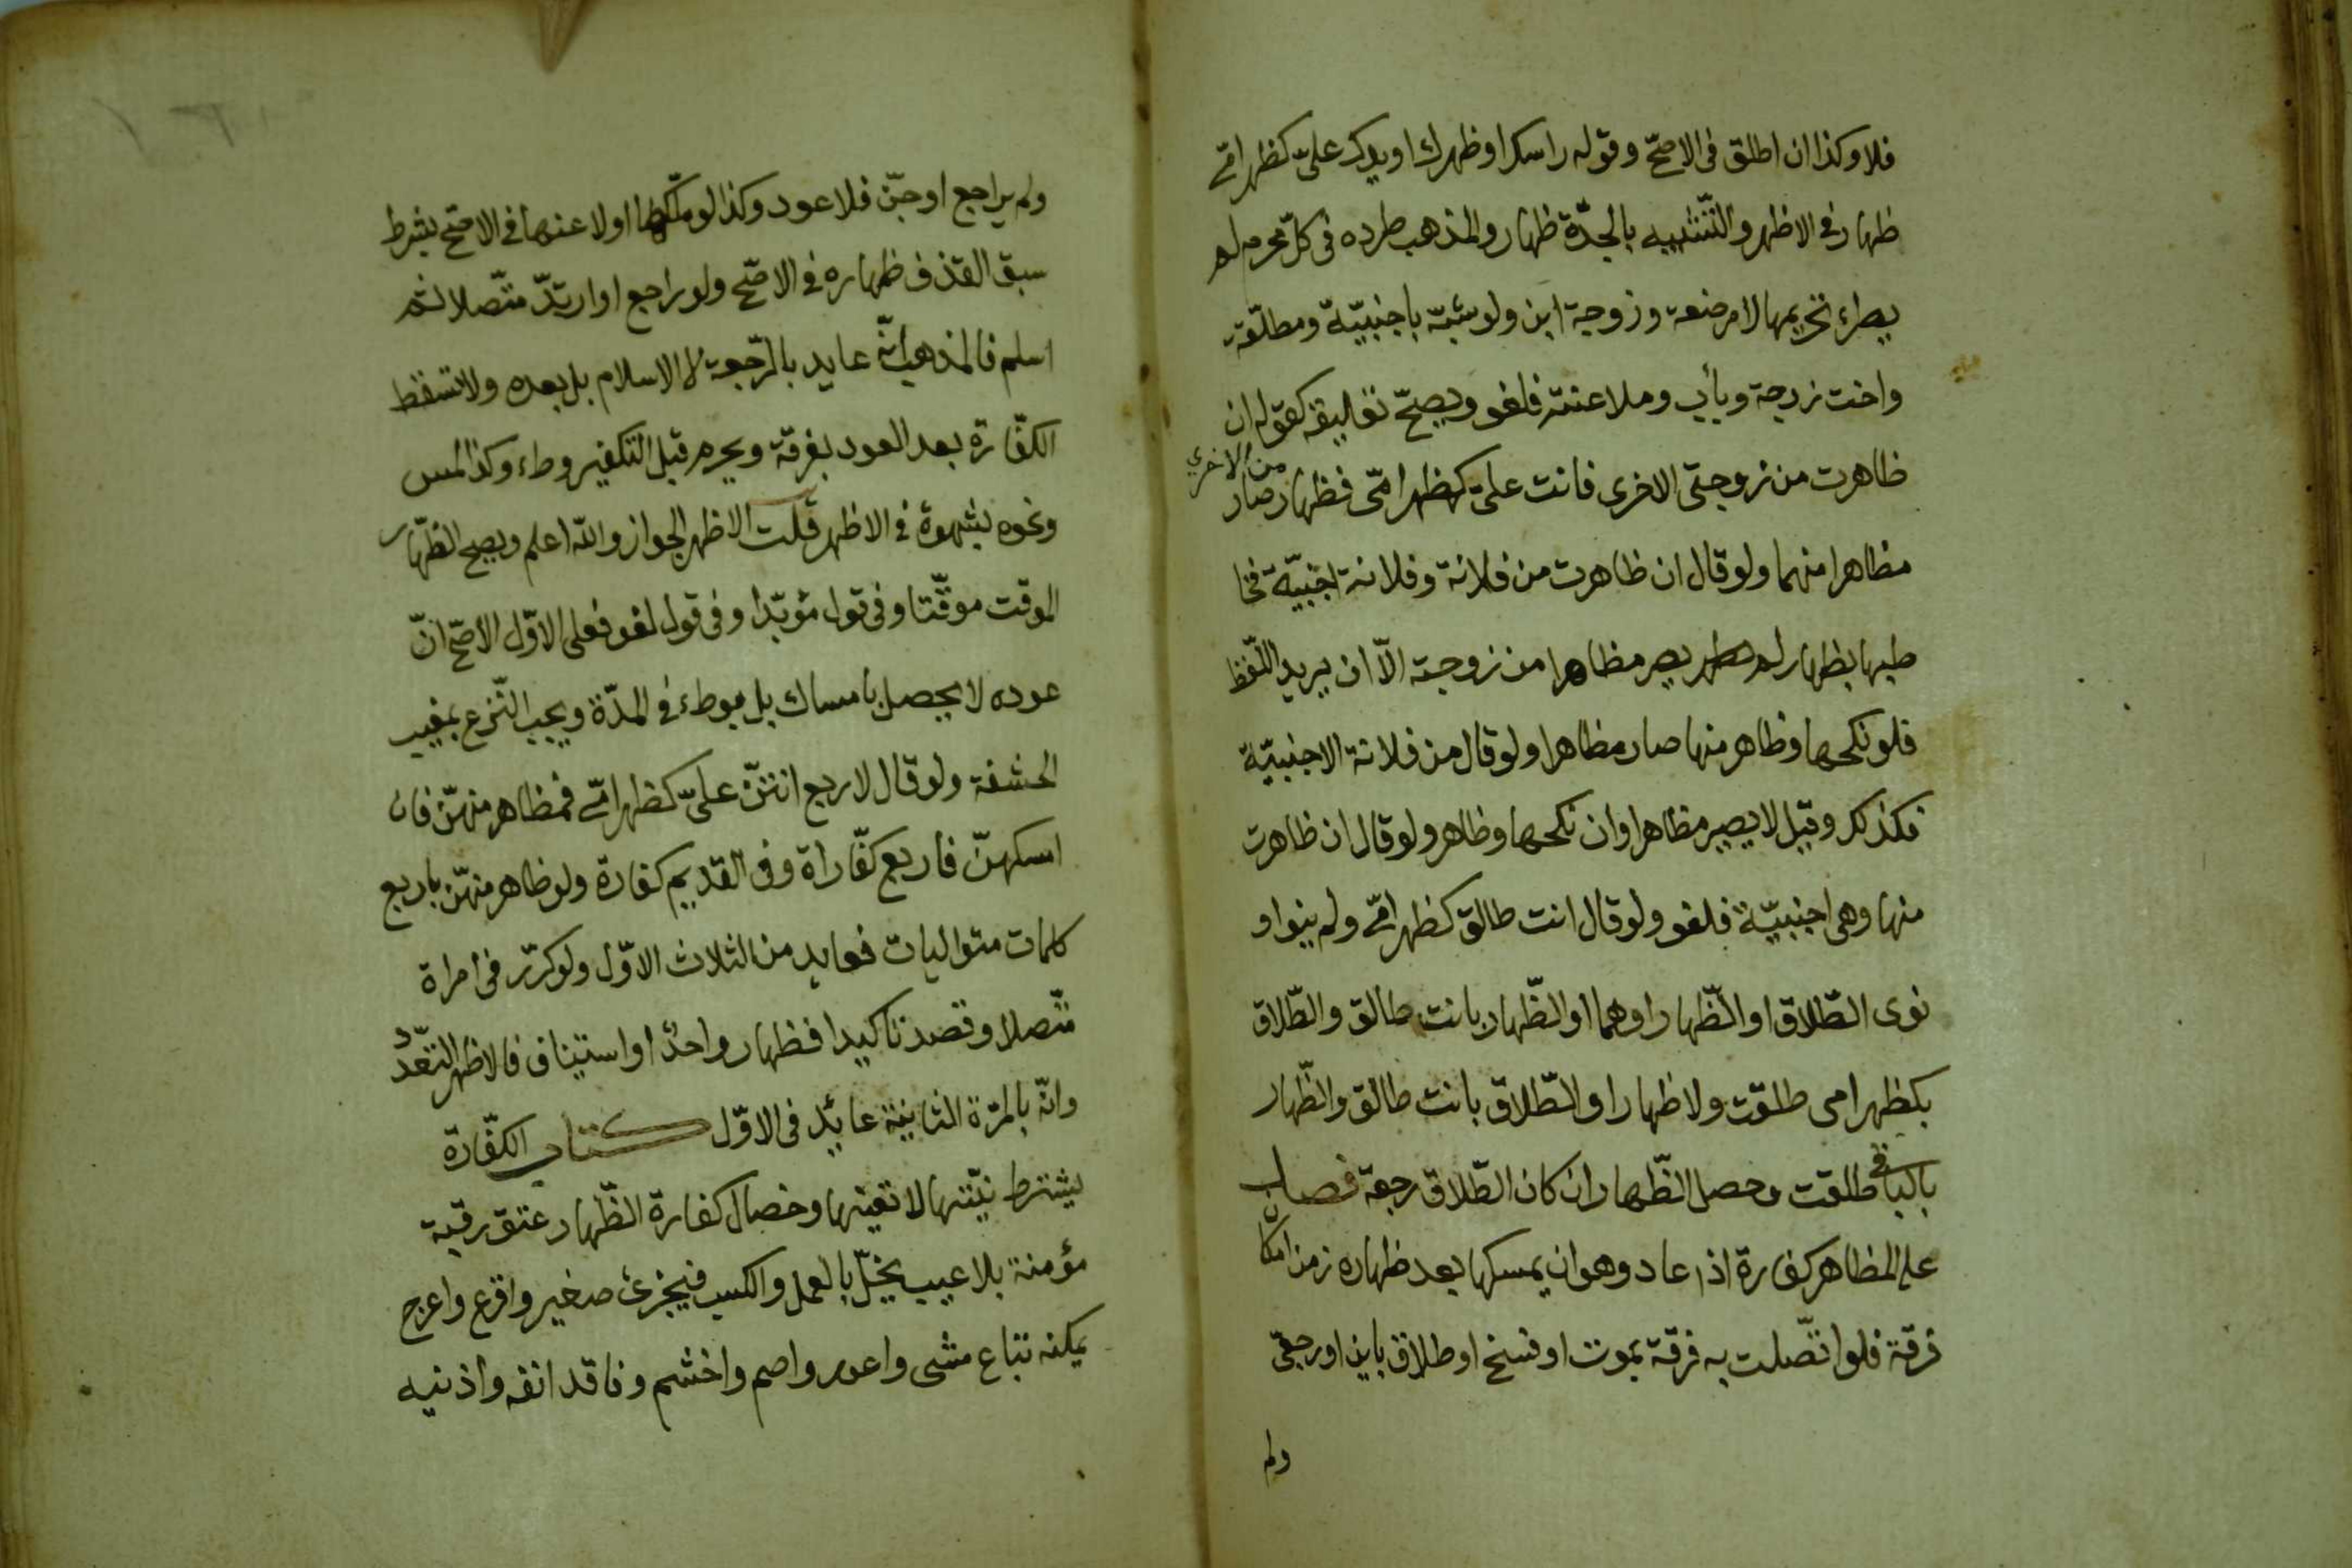 فلا وكذا ان اطلق فى الاصحّ وقوله راسك او ظهرك او يدك علىّ كظهر امّى
ظهار فى الاظهر والتّشبيه بالجدّة ظهار والمذهب طرده فى كلّ محرم لم
يطراء تحريمها لا مرضعة وزوجة ابن ولو شبّه باجنبيّة ومطلّقة
واخت زوجة وبأب وملاعنة فلغو ويصحّ تعليقه كقوله ان
ظاهرت من زوجتى الاخرى فانت علىّ كظهر امّى فظهار صار
من الاخرى
مظاهرا منهما ولو قال ان ظاهرت من فلانة وفلانة اجنبيّة فخا
طبها بظهار لم يصر مظاهرا من زوجته الّا ان يريد اللّفظ
فلو نكحها وظاهر منها صار مظاهرا ولو قال من فلانة الاجنبيّة
فكذلك وقيل لا يصير مظاهرا وان نكحها وظاهر ولو قال ان ظاهرت
منها وهى اجنبيّة فلغو ولو قال انت طالق كظهر امّى ولم ينو او
نوى الطّلاق او الظّهار او هما او الظّهار بانت طالق والطّلاق
بكظهر امى طلقت ولا ظهار او الطّلاق بانت طالق والظّهار
بالباقى طلقت وحصل الظّهار ان كان الطّلاق رجعة فصل
على المظاهر كفارة اذا عاد وهو ان يمسكها بعد ظهاره زمن امكان
فرقة فلو اتّصلت به فرقة بموت او فسخ او طلاق باين او رجعى
ولم
ولم يراجع او جنّ فلا عود وكذا لو ملكها او لاعنها فى الاصحّ بشرط
سبق القذف ظهاره فى الاصحّ ولو راجع او ارتدّ متّصلا ثم
اسلم فالمذهب انّه عايد بالرّجعة لا الاسلام بل بعده ولا تسقط
الكفّارة بعد العود بفرقة ويحرم قبل التكفير وطء وكذا لمس
ونحوه بشهوة فى الاظهر قلت الاظهر الجواز واللّه اعلم ويصح الظّهار
الموقت موقّتا وفى قول مؤبّدا وفى قول لغو فعلى الاوّل الأصحّ انّ
عوده لا يحصل بامساك بل بوطء فى المدّة ويجب النّزع بمغيب
الحشفة ولو قال لاربع انتنّ علىّ كظهر امّى فمظاهر منهنّ فان
امسكهنّ فاربع كفّاراة وفى القديم كفارة ولو ظاهر منهنّ باربع
كلمات متواليات فعايد من الثلاث الاوّل ولو كرّر فى امراة
متّصلا وقصد تاكيدا فظهار واحد او استيناف فالاظهر التعدّد
وانّه بالمرّة الثانية عايد فى الاوّل كتاب الكفّارة
يشترط نيّتها لا تعيّنها وخصال كفارة الظّهار عتق رقبة
مؤمنة بلا عيب يخلّ بالعمل والكسب فيجزئ صغير واقرع واعرج
يمكنه تباع مشى واعور واصم واخشم وفاقد انفه واذنيه